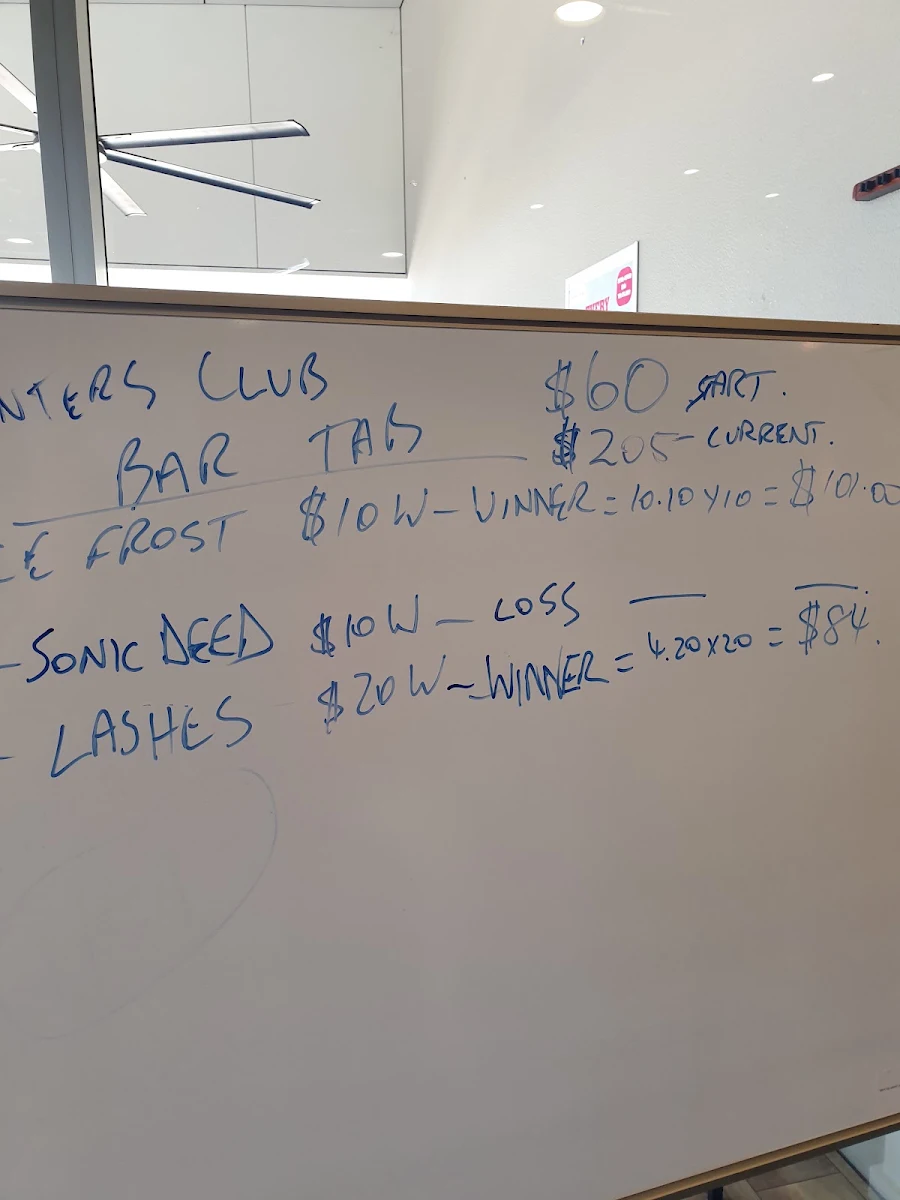 NTERS CLUB $60 START.
BAR TAB $205 - CURRENT.
EE FROST $10 W - WINNER = 10.10 X 10 = $101.00
- SONIC DEED $10 W - LOSS — —.
- LASHES $20 W - WINNER = 4.20 X 20 = $84.